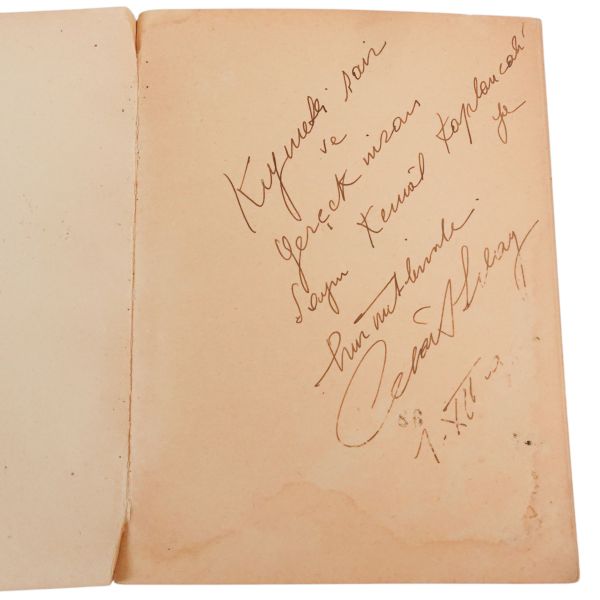 Kıymetli şair
ve
gerçek insan
Sayın Kemâl Kaplancalı'
ya
hürmetlerimle.
Celâl Sılay
1.XII